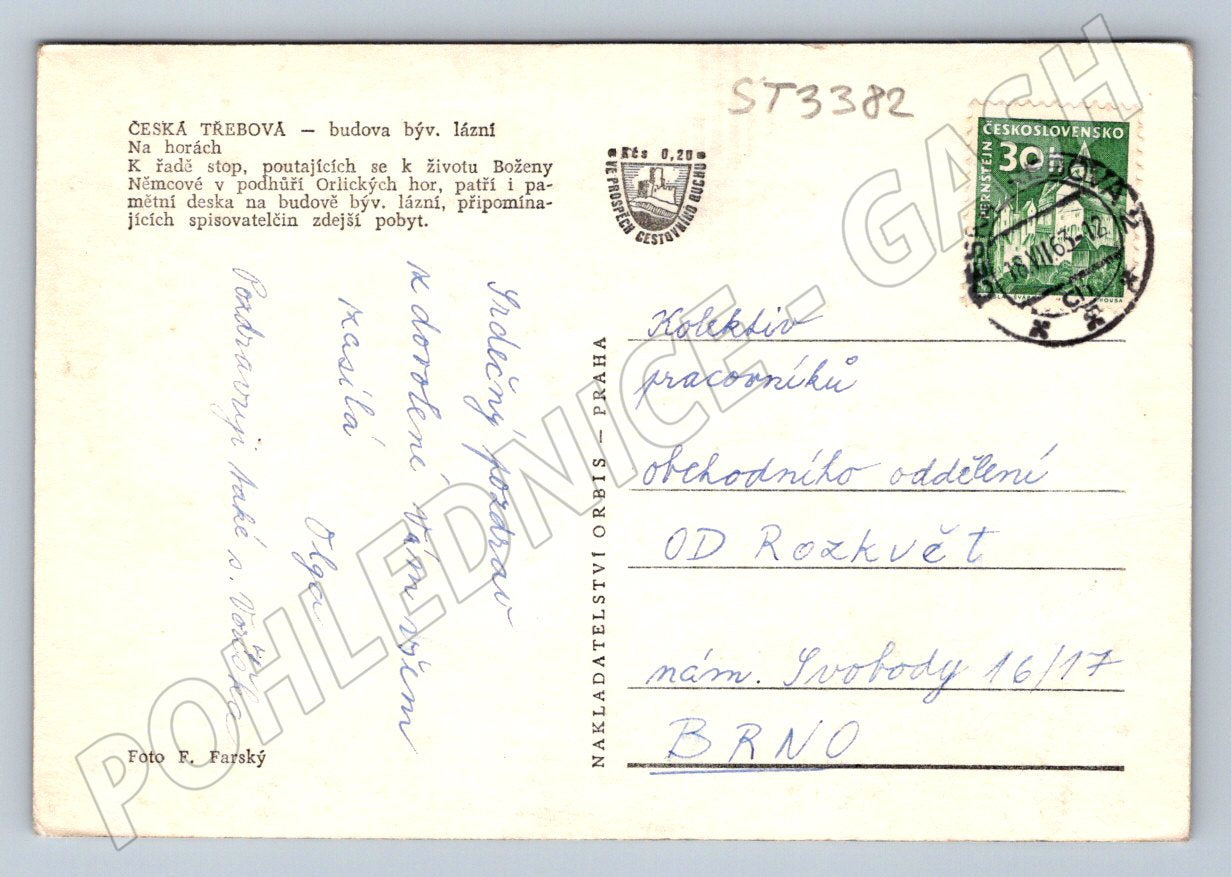 ST3382
ČESKÁ TŘEBOVÁ — budova býv. lázní
Na horách
K řadě stop, poutajících se k životu Boženy
Němcové v podhůří Orlických hor, patří i pa-
mětní deska na budově býv. lázní, připomína-
jících spisovatelčin zdejší pobyt.
Kčs 0,20
VE PROSPĚCH CESTOVNÍHO RUCHU
ČESKOSLOVENSKO
30 h
18.VII.63-12
Srdečný pozdrav
z dovolené Vám všem
zasílá
Olga
Pozdravuji také s.
Kolektiv
pracovníků
obchodního oddělení
OD Rozkvět
nám. Svobody 16/17
BRNO
NAKLADATELSTVÍ ORBIS — PRAHA
Foto F. Farský
POHLEDNICE - GASH